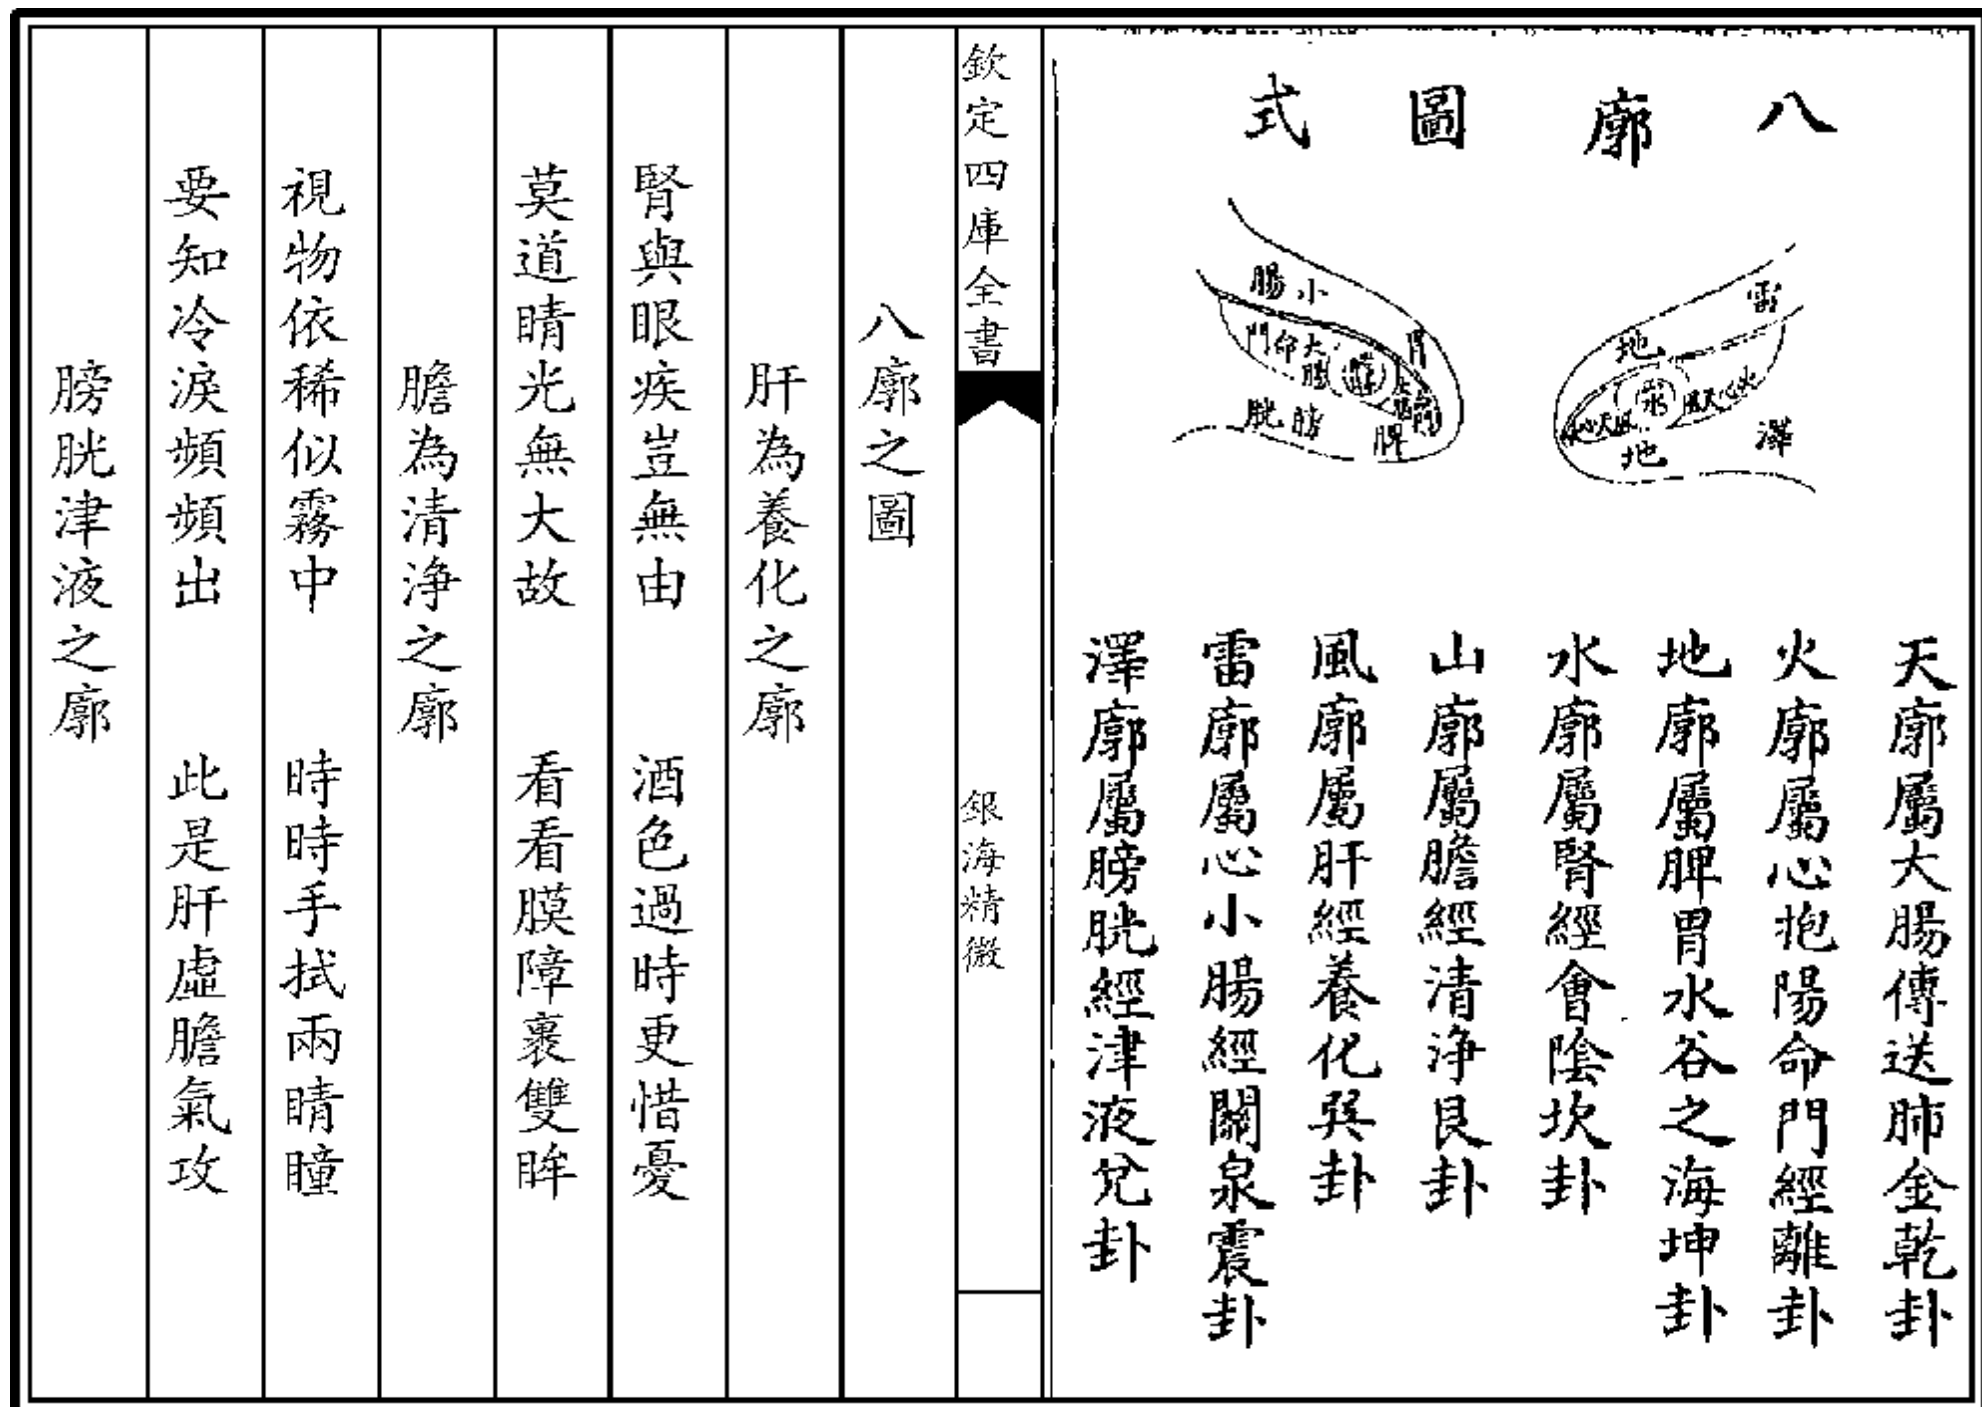 八廓圖式
雷
地
火心天風
水
風天心
地
澤
胃
小腸
大腸
命門
脾
膀胱
天廓屬大腸傳送肺金乾卦
火廓屬心抱陽命門經離卦
地廓屬脾胃水谷之海坤卦
水廓屬腎經會陰坎卦
山廓屬膽經清浄艮卦
風廓屬肝經養化巽卦
雷廓屬心小腸經關泉震卦
澤廓屬膀胱經津液兌卦
欽定四庫全書
銀海精微
八廓之圖
肝為養化之廓
腎與眼疾豈無由 酒色過時更惜憂
莫道睛光無大故 看看膜障裹雙眸
膽為清浄之廓
視物依稀似霧中 時時手拭兩睛瞳
要知冷淚頻頻出 此是肝虛膽氣攻
膀胱津液之廓